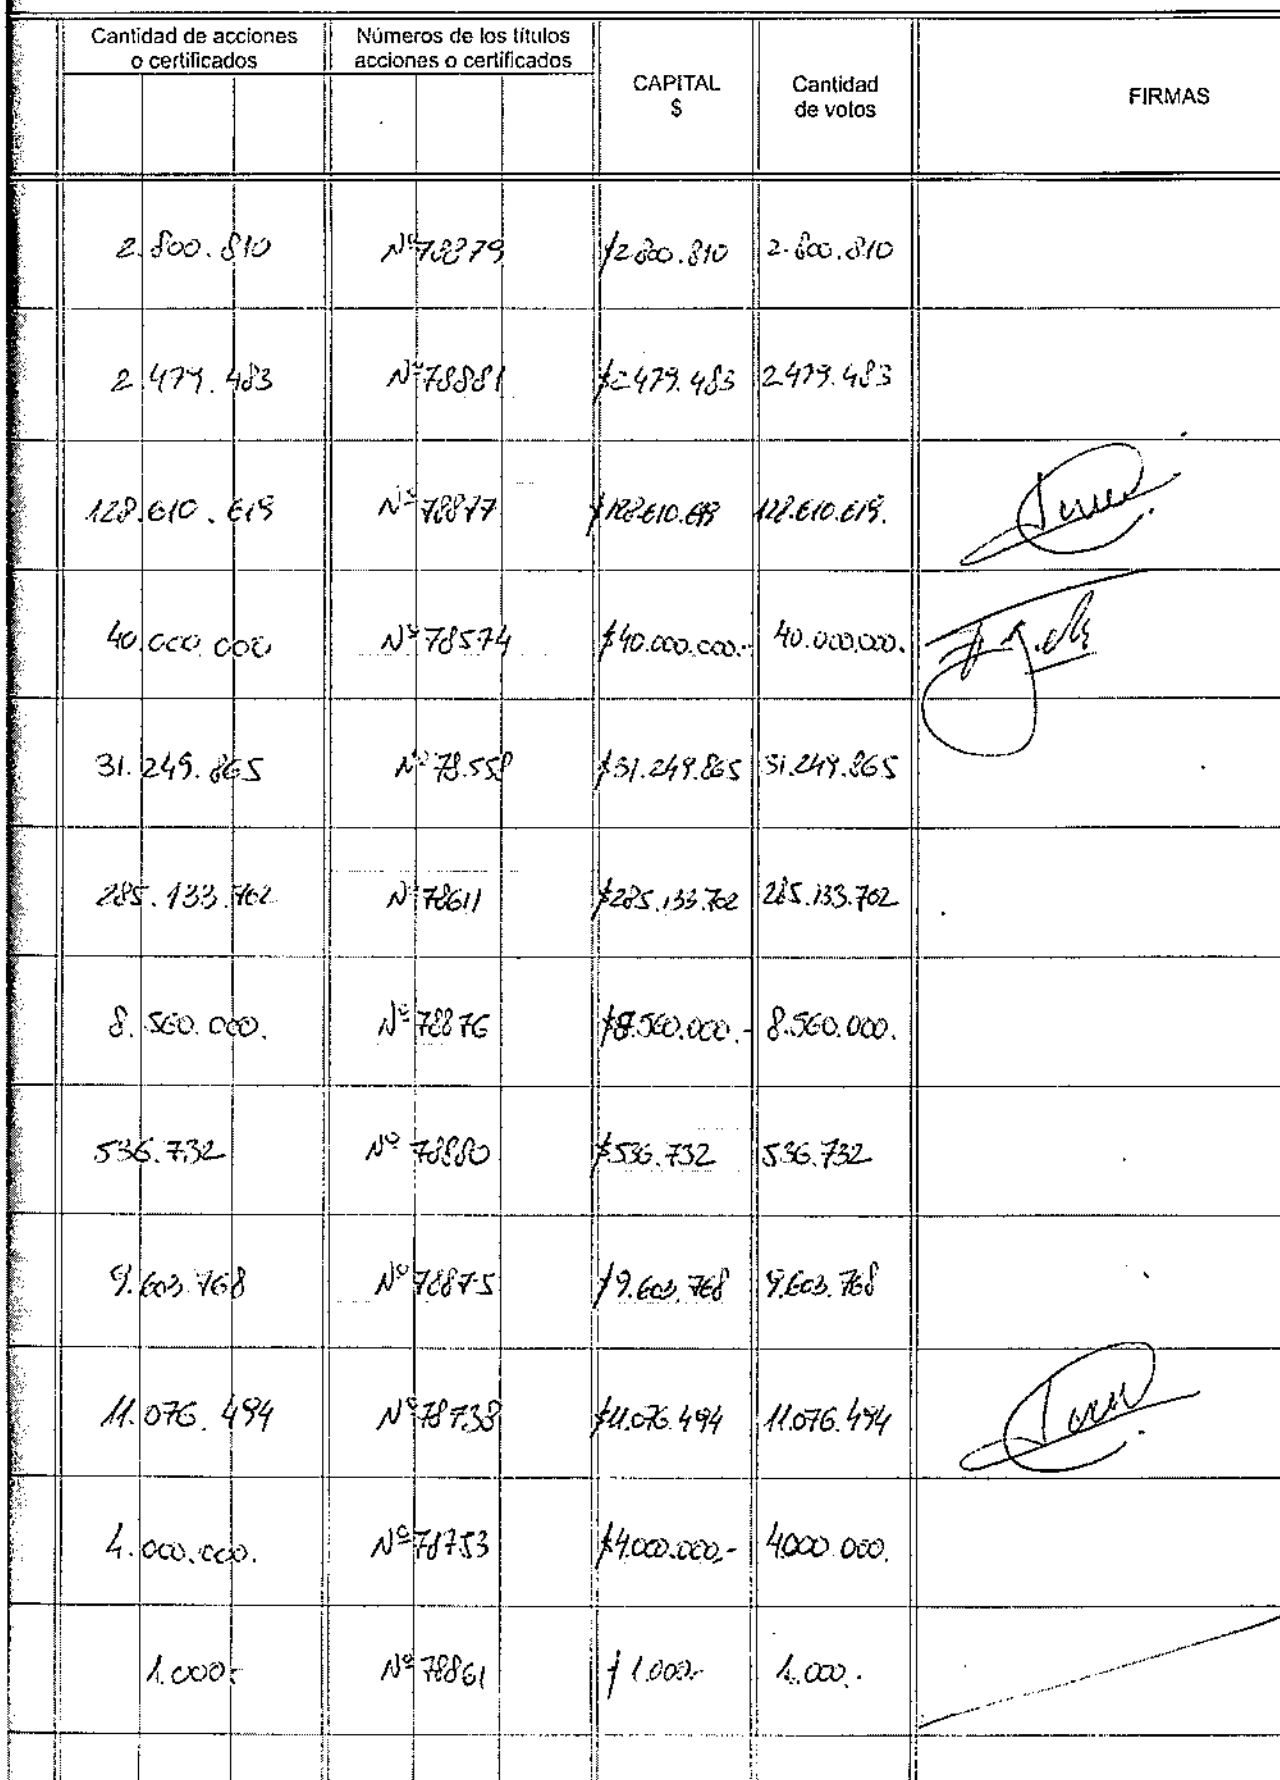 Cantidad de acciones o certificados
Números de los títulos acciones o certificados
CAPITAL $
Cantidad de votos
FIRMAS
2.800.810 Nº78879 $2.800.810 2.800.810
2.479.483 Nº78881 $2.479.483 2.479.483
128.610.619 Nº78877 $128.610.619 128.610.619.
40.000.000 Nº78574 $40.000.000.- 40.000.000.
31.249.865 Nº78.558 $31.249.865 31.249.865
285.133.702 Nº78611 $285.133.702 285.133.702
8.560.000. Nº78876 $8.560.000.- 8.560.000.
536.732 Nº78880 $536.732 536.732
9.603.768 Nº78875 $9.603.768 9.603.768
11.076.494 Nº78738 $11.076.494 11.076.494
4.000.000. Nº78753 $4.000.000.- 4.000.000.
1.000.- Nº78861 $1.000.- 1.000.-